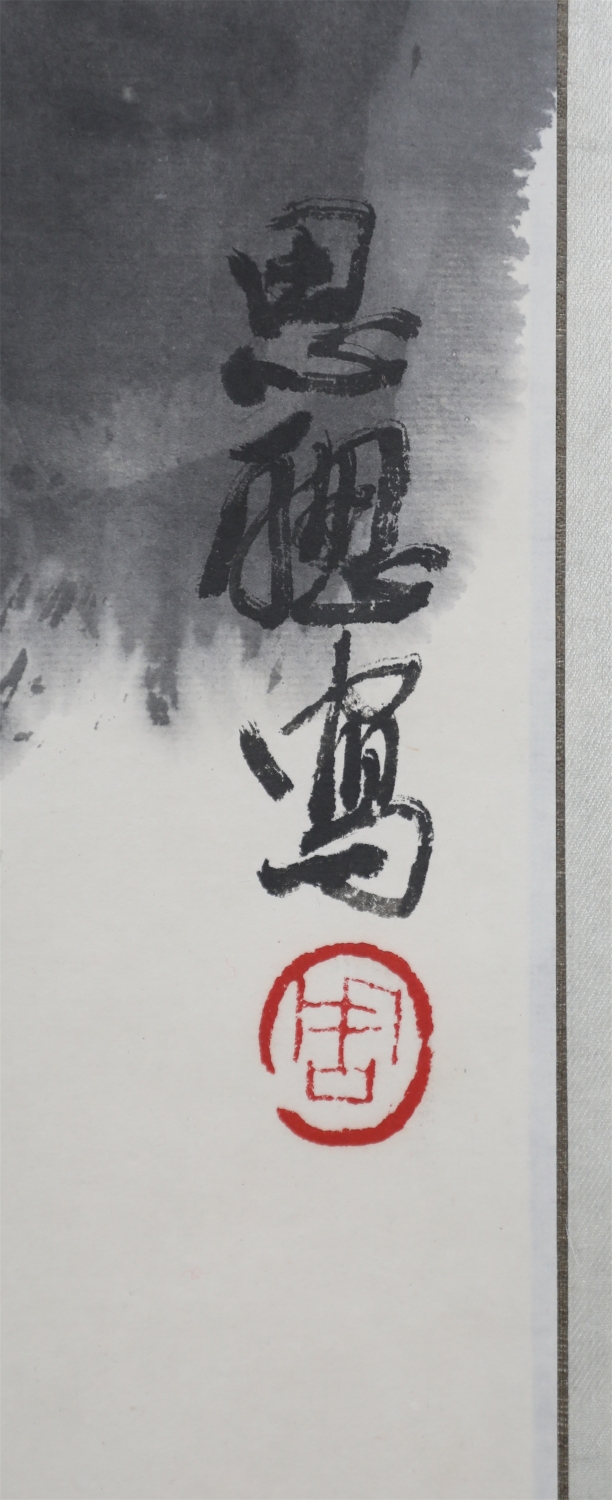 思聰寫
周